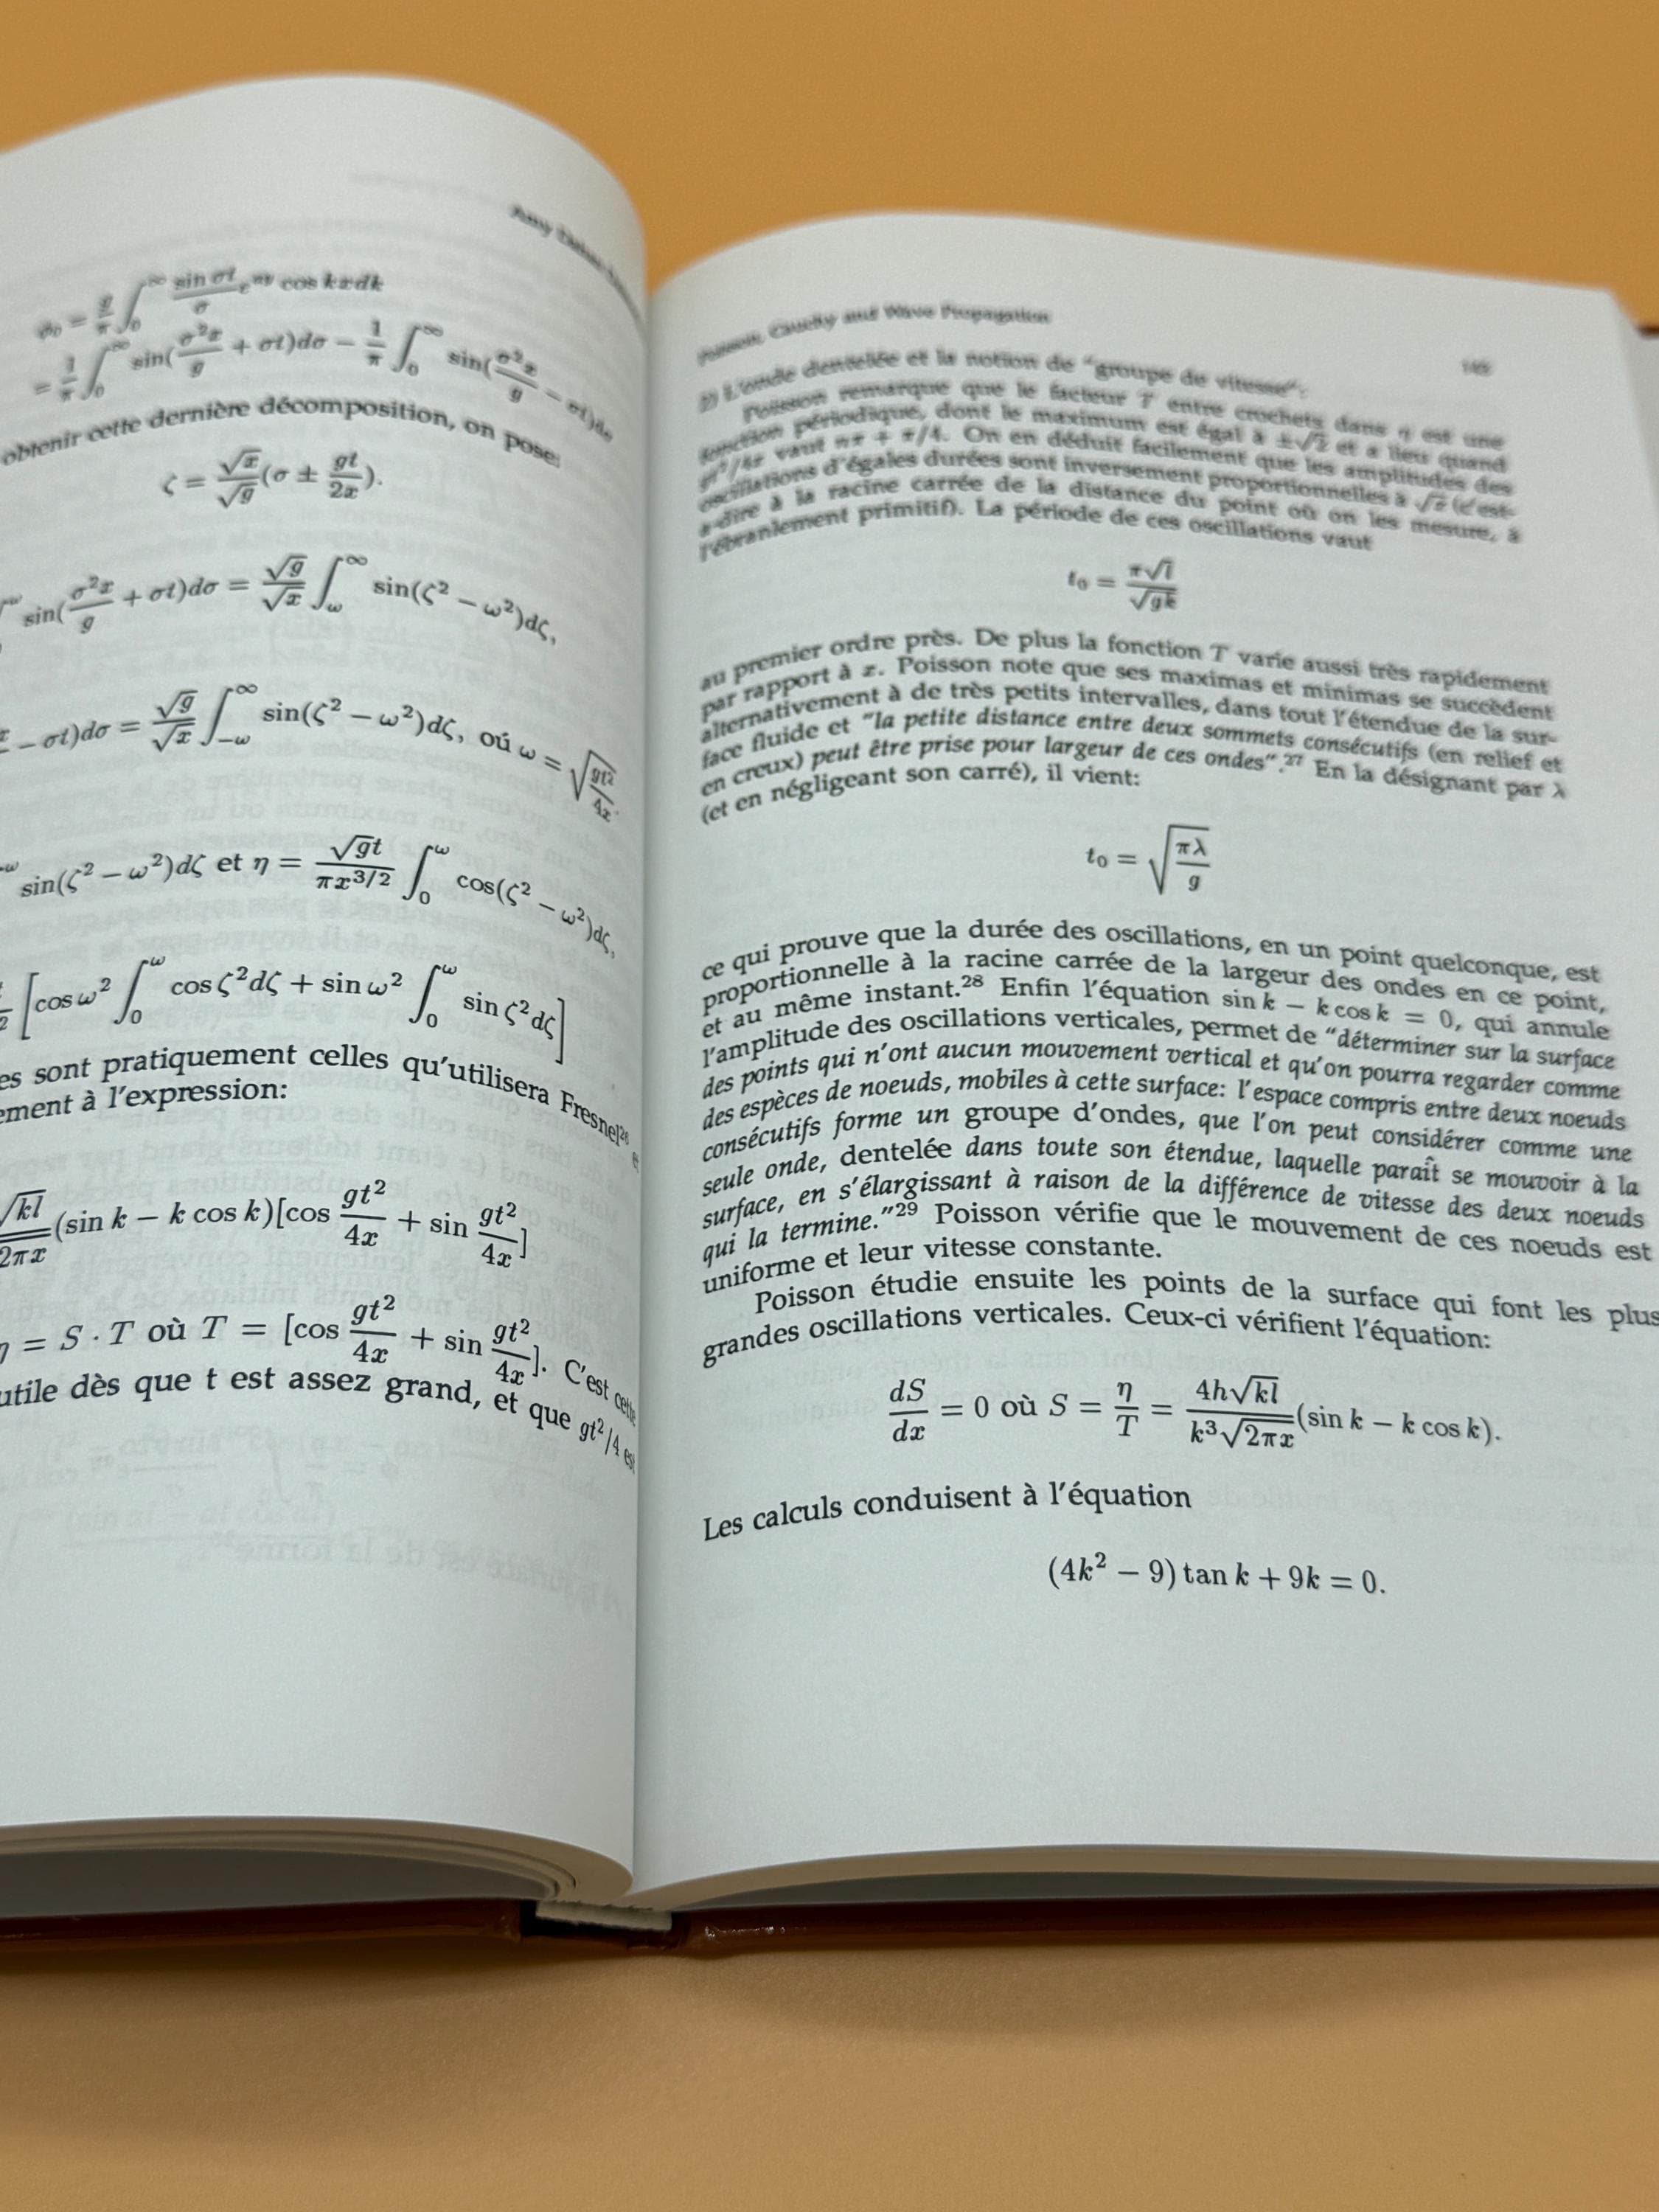 Amy Dahan
ϕ₀ = g/π ∫₀^∞ (sin σt)/σ e^{my} cos kxdk
= 1/π ∫₀^∞ sin(σ²x/g + σt)dσ − 1/π ∫₀^∞ sin(σ²x/g − σt)dσ
obtenir cette dernière décomposition, on pose:
ζ = √x/√g (σ ± gt/2x).
sin(σ²x/g + σt)dσ = √g/√x ∫_ω^∞ sin(ζ² − ω²)dζ,
− σt)dσ = √g/√x ∫_{−ω}^∞ sin(ζ² − ω²)dζ, oú ω = √(gt²/4x).
sin(ζ² − ω²)dζ et η = √gt/πx^{3/2} ∫₀^ω cos(ζ² − ω²)dζ,
[cos ω² ∫₀^ω cos ζ²dζ + sin ω² ∫₀^ω sin ζ²dζ]
es sont pratiquement celles qu'utilisera Fresnel²⁶ e
ement à l'expression:
√kl/√2πx (sin k − k cos k)[cos gt²/4x + sin gt²/4x]
η = S · T où T = [cos gt²/4x + sin gt²/4x]. C'est cette
utile dès que t est assez grand, et que gt²/4 est
Poisson, Cauchy and Wave Propagation
L'onde dentelée et la notion de "groupe de vitesse":
Poisson remarque que le facteur T entre crochets dans η est une
fonction périodique, dont le maximum est égal à ±√2 et a lieu quand
gt²/4x vaut nπ + π/4. On en déduit facilement que les amplitudes des
oscillations d'égales durées sont inversement proportionnelles à √x (c'est-
a-dire à la racine carrée de la distance du point où on les mesure, à
l'ébranlement primitif). La période de ces oscillations vaut
t₀ = π√l/√gk
au premier ordre près. De plus la fonction T varie aussi très rapidement
par rapport à x. Poisson note que ses maximas et minimas se succèdent
alternativement à de très petits intervalles, dans tout l'étendue de la sur-
face fluide et "la petite distance entre deux sommets consécutifs (en relief et
en creux) peut être prise pour largeur de ces ondes".²⁷ En la désignant par λ
(et en négligeant son carré), il vient:
t₀ = √(πλ/g)
ce qui prouve que la durée des oscillations, en un point quelconque, est
proportionnelle à la racine carrée de la largeur des ondes en ce point,
et au même instant.²⁸ Enfin l'équation sin k − k cos k = 0, qui annule
l'amplitude des oscillations verticales, permet de "déterminer sur la surface
des points qui n'ont aucun mouvement vertical et qu'on pourra regarder comme
des espèces de noeuds, mobiles à cette surface: l'espace compris entre deux noeuds
consécutifs forme un groupe d'ondes, que l'on peut considérer comme une
seule onde, dentelée dans toute son étendue, laquelle paraît se mouvoir à la
surface, en s'élargissant à raison de la différence de vitesse des deux noeuds
qui la termine."²⁹ Poisson vérifie que le mouvement de ces noeuds est
uniforme et leur vitesse constante.
Poisson étudie ensuite les points de la surface qui font les plus
grandes oscillations verticales. Ceux-ci vérifient l'équation:
dS/dx = 0 où S = η/T = 4h√kl/k³√2πx (sin k − k cos k).
Les calculs conduisent à l'équation
(4k² − 9) tan k + 9k = 0.